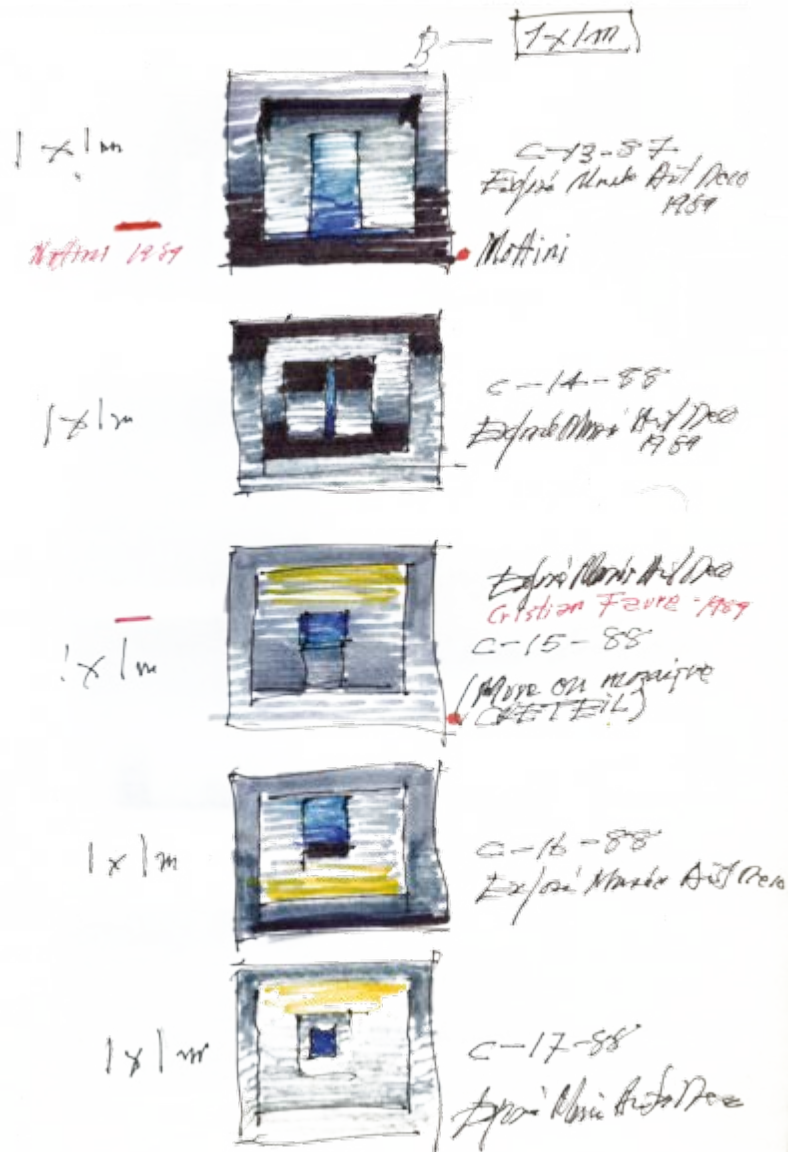 B — 1x1m
1x1m
C-13-87
Exposé Musée Art Deco
1989
Mottini 1989
Mottini
1x1m
C-14-88
Exposé Musée Art Deco
1989
Exposé Musée Art Deco
Cristian Favre - 1989
C-15-88
1x1m
(Mure en mozaique
CRETEIL)
1x1m
C-16-88
Exposé Musée Art Deco
1x1m
C-17-88
Exposé Musée Art Deco